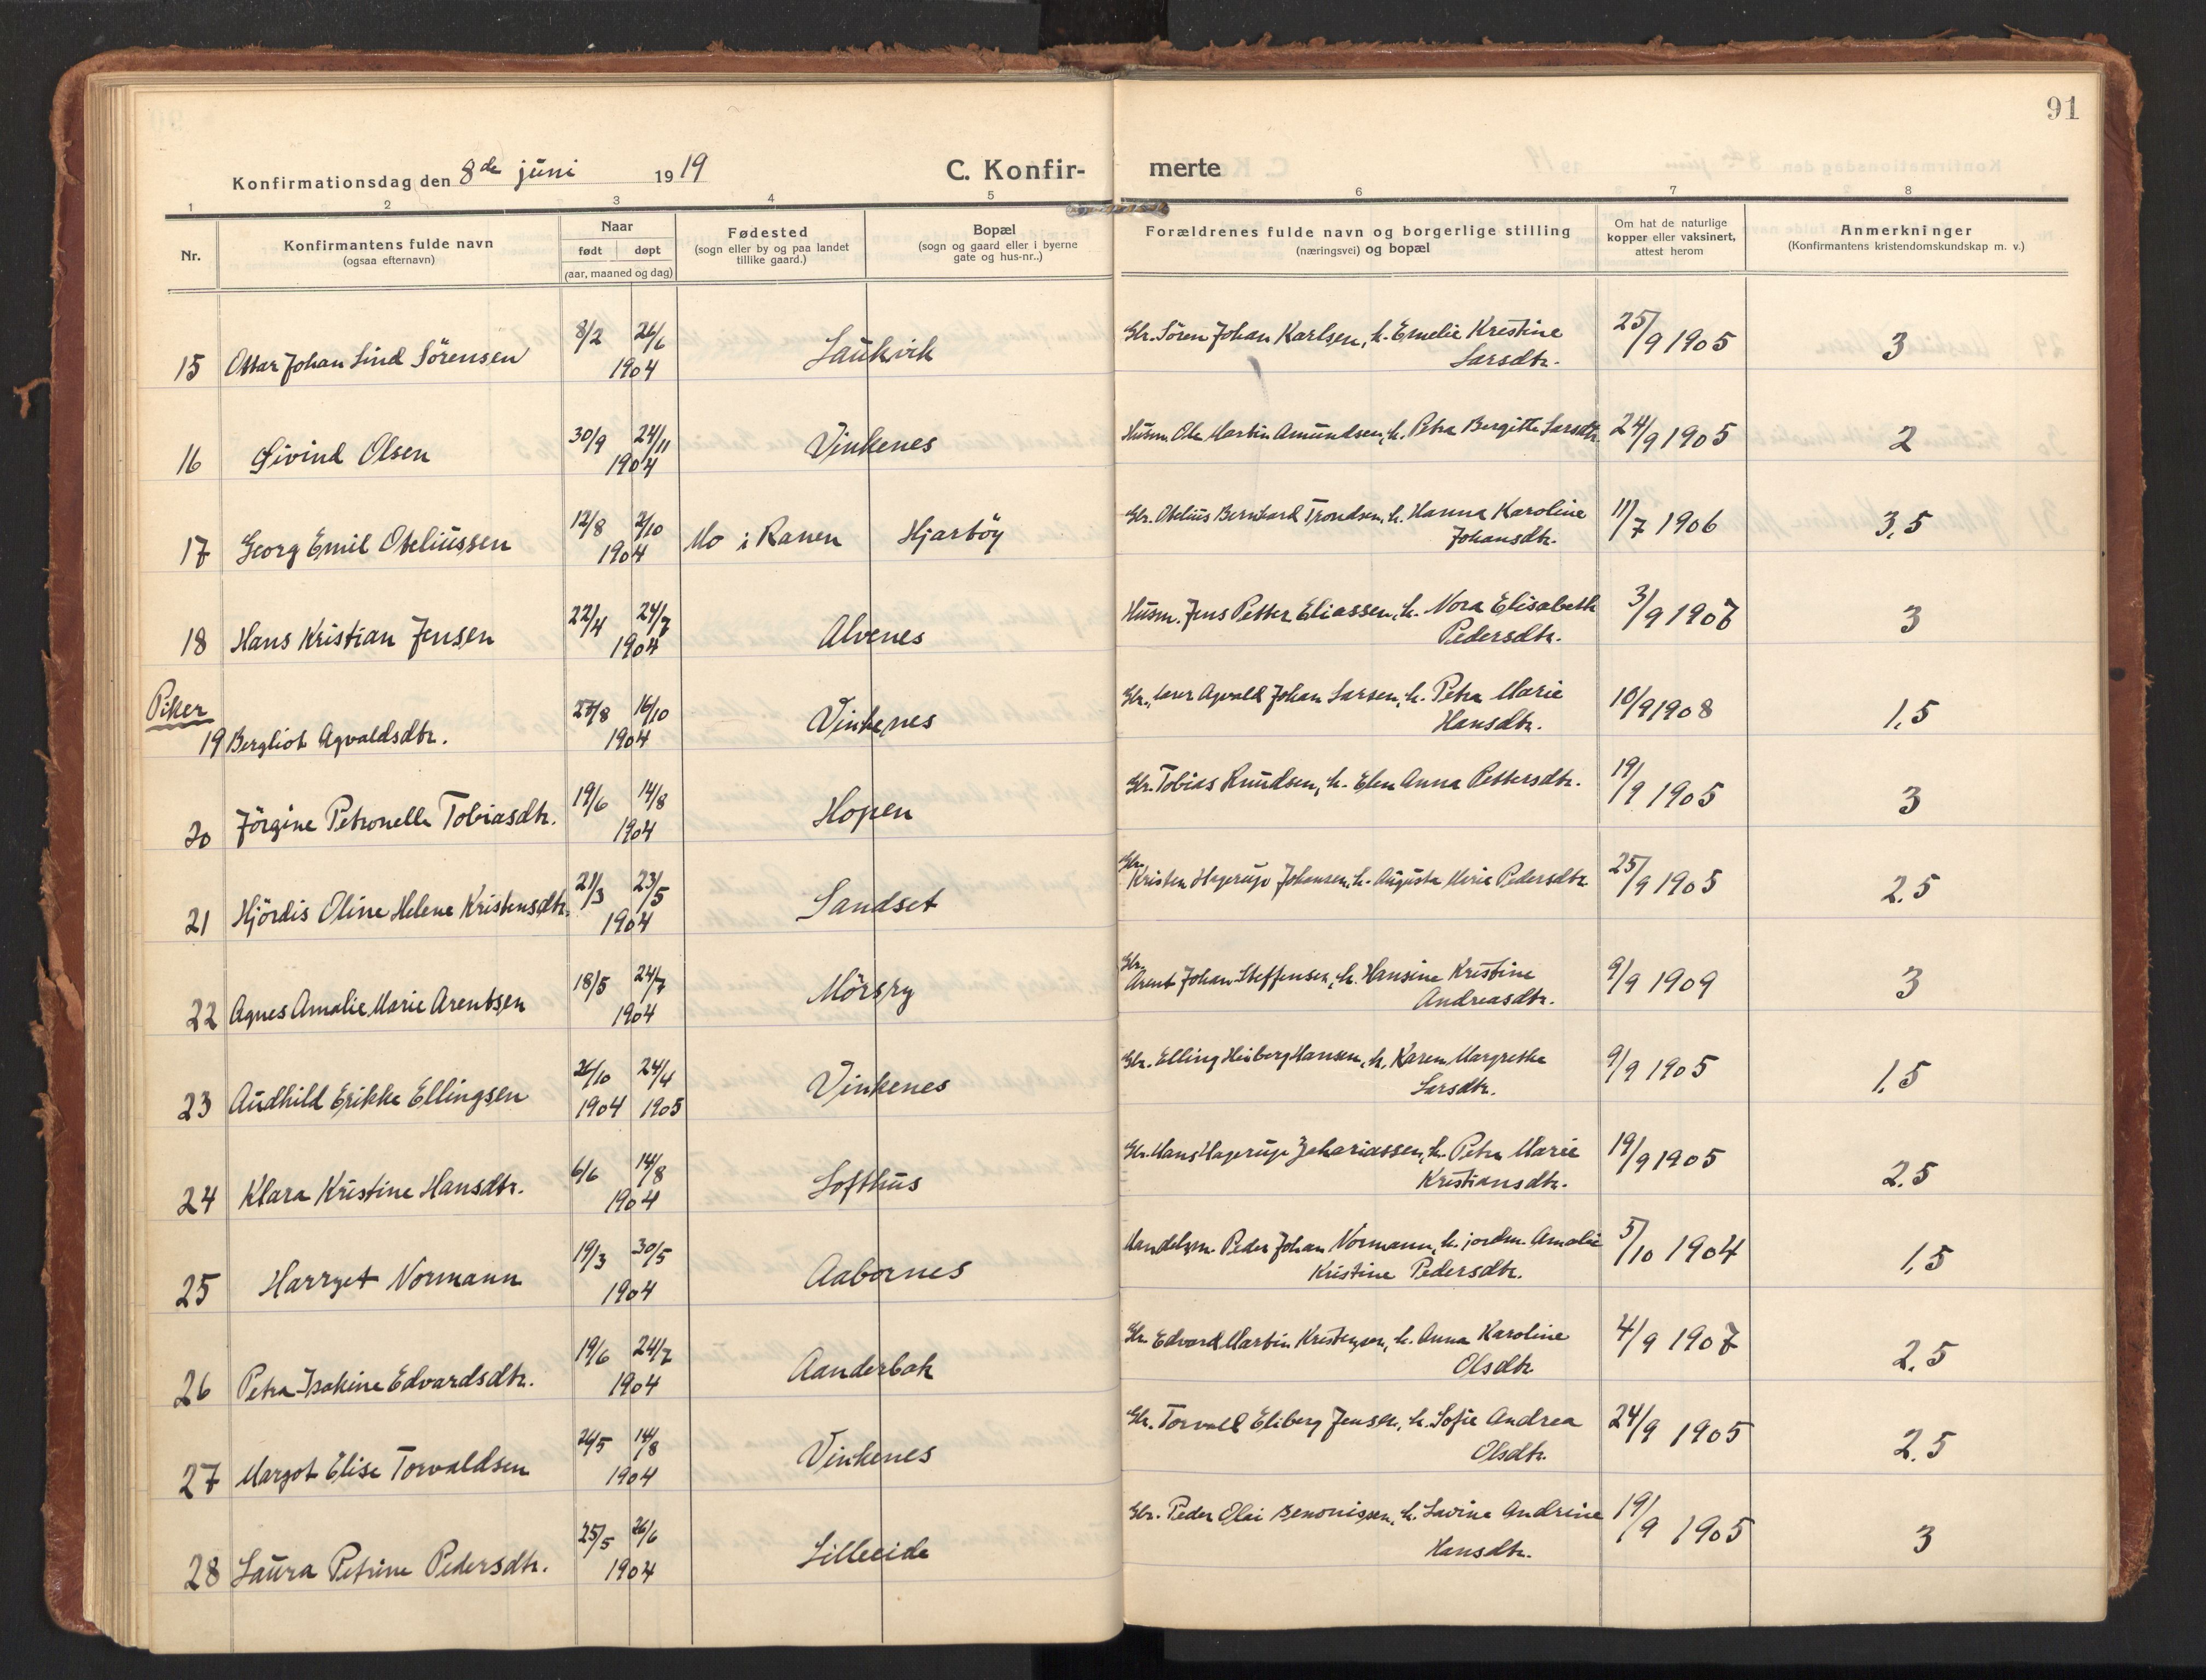 91
Konfirmationsdag den 8de juni 1919 C. Konfirmerte
1 2 3 4 5 6 7 8
Nr.
Konfirmantens fulde navn
(ogsaa efternavn)
Naar
født døpt
(aar, maaned og dag)
Fødested
(sogn eller by og paa landet
tillike gaard.)
Bopæl
(sogn og gaard eller i byerne
gate og hus-nr..)
Forældrenes fulde navn og borgerlige stilling
(næringsvei) og bopæl
Om hat de naturlige
kopper eller vaksinert,
attest herom
Anmerkninger
(Konfirmantens kristendomskundskap m. v.)
15 Ottar Johan Lind Sörensen 8/2 26/6 1904 Laukvik Gbr. Sören Johan Karlsen, h. Emelie Kristine 25/9 1905 3
Larsdtr.
16 Øivind Olsen 30/9 24/11 1904 Vinkenes Husm. Ole Martin Amundsen, h. Petra Bergitte Larsdtr. 24/9 1905 2
17 Georg Emil Obeliussen 12/8 2/10 1904 Mo i Ranen Hjartöy Gbr. Obelius Bernhard Trondsen, h. Hanna Karoline 11/7 1906 3,5
Johansdtr.
18 Hans Kristian Jensen 22/4 24/7 1904 Alvenes Husm. Jens Petter Eliassen, h. Nora Elisabeth 3/9 1907 3
Pedersdtr.
Piker
19 Bergliot Agvaldsdtr. 27/8 16/10 1904 Vinkenes Gbr., lærer Agvald Johan Larsen, h. Petra Marie 10/9 1908 1,5
Hansdtr.
20 Jörgine Petronelle Tobiasdtr. 19/6 14/8 1904 Hopen Gbr. Tobias Knudsen, h. Elen Anna Pettersdtr. 19/9 1905 3
21 Hjördis Oline Helene Kristensdtr. 21/3 23/5 1904 Sandset Gbr. Kristen Hagerup Johansen, h. Augusta Marie Pedersdtr. 25/9 1905 2.5
22 Agnes Amalie Marie Arentsen 18/5 24/7 1904 Mörsry Gbr. Arent Johan Steffensen, h. Hansine Kristine 9/9 1909 3
Andreasdtr.
23 Audhild Erikke Ellingsen 26/10 1904 24/4 1905 Vinkenes Gbr. Elling Heiberg Hansen, h. Karen Margrethe 9/9 1905 1,5
Larsdtr.
24 Klara Kristine Hansdtr. 6/6 14/8 1904 Lofthus Gbr. Hans Hagerup Zakariassen, h. Petra Marie 19/9 1905 2.5
Kristiansdtr.
25 Harryet Normann 19/3 30/5 1904 Aabornes Handelsm. Peder Johan Normann, h. jordm. Amalie 5/10 1904 1,5
Kristine Pedersdtr.
26 Petra Isakine Edvardsdtr. 19/6 24/7 1904 Aanderbak Gbr. Edvard Martin Kristensen, h. Anna Karoline 4/9 1907 2.5
Olsdtr
27 Margot Elise Torvaldsen 26/5 14/8 1904 Vinkenes Gbr. Torvald Eliberg Jensen, h. Sofie Andrea 24/9 1905 2.5
Olsdtr.
28 Laura Petrine Pedersdtr. 25/5 26/6 1904 Lilleeide Gbr. Peder Olai Benonissen, h. Lavine Andrine 19/9 1905 3
Hansdtr.